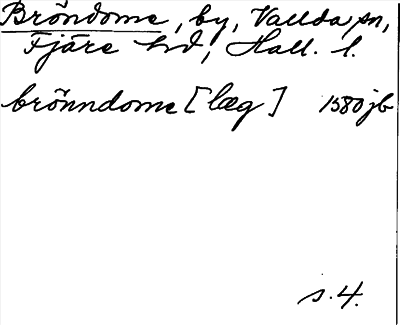 Bröndome, by, Vallda sn,
Fjäre hd, Hall. l.
brönndome [læg] 1580 jb
s. 4.